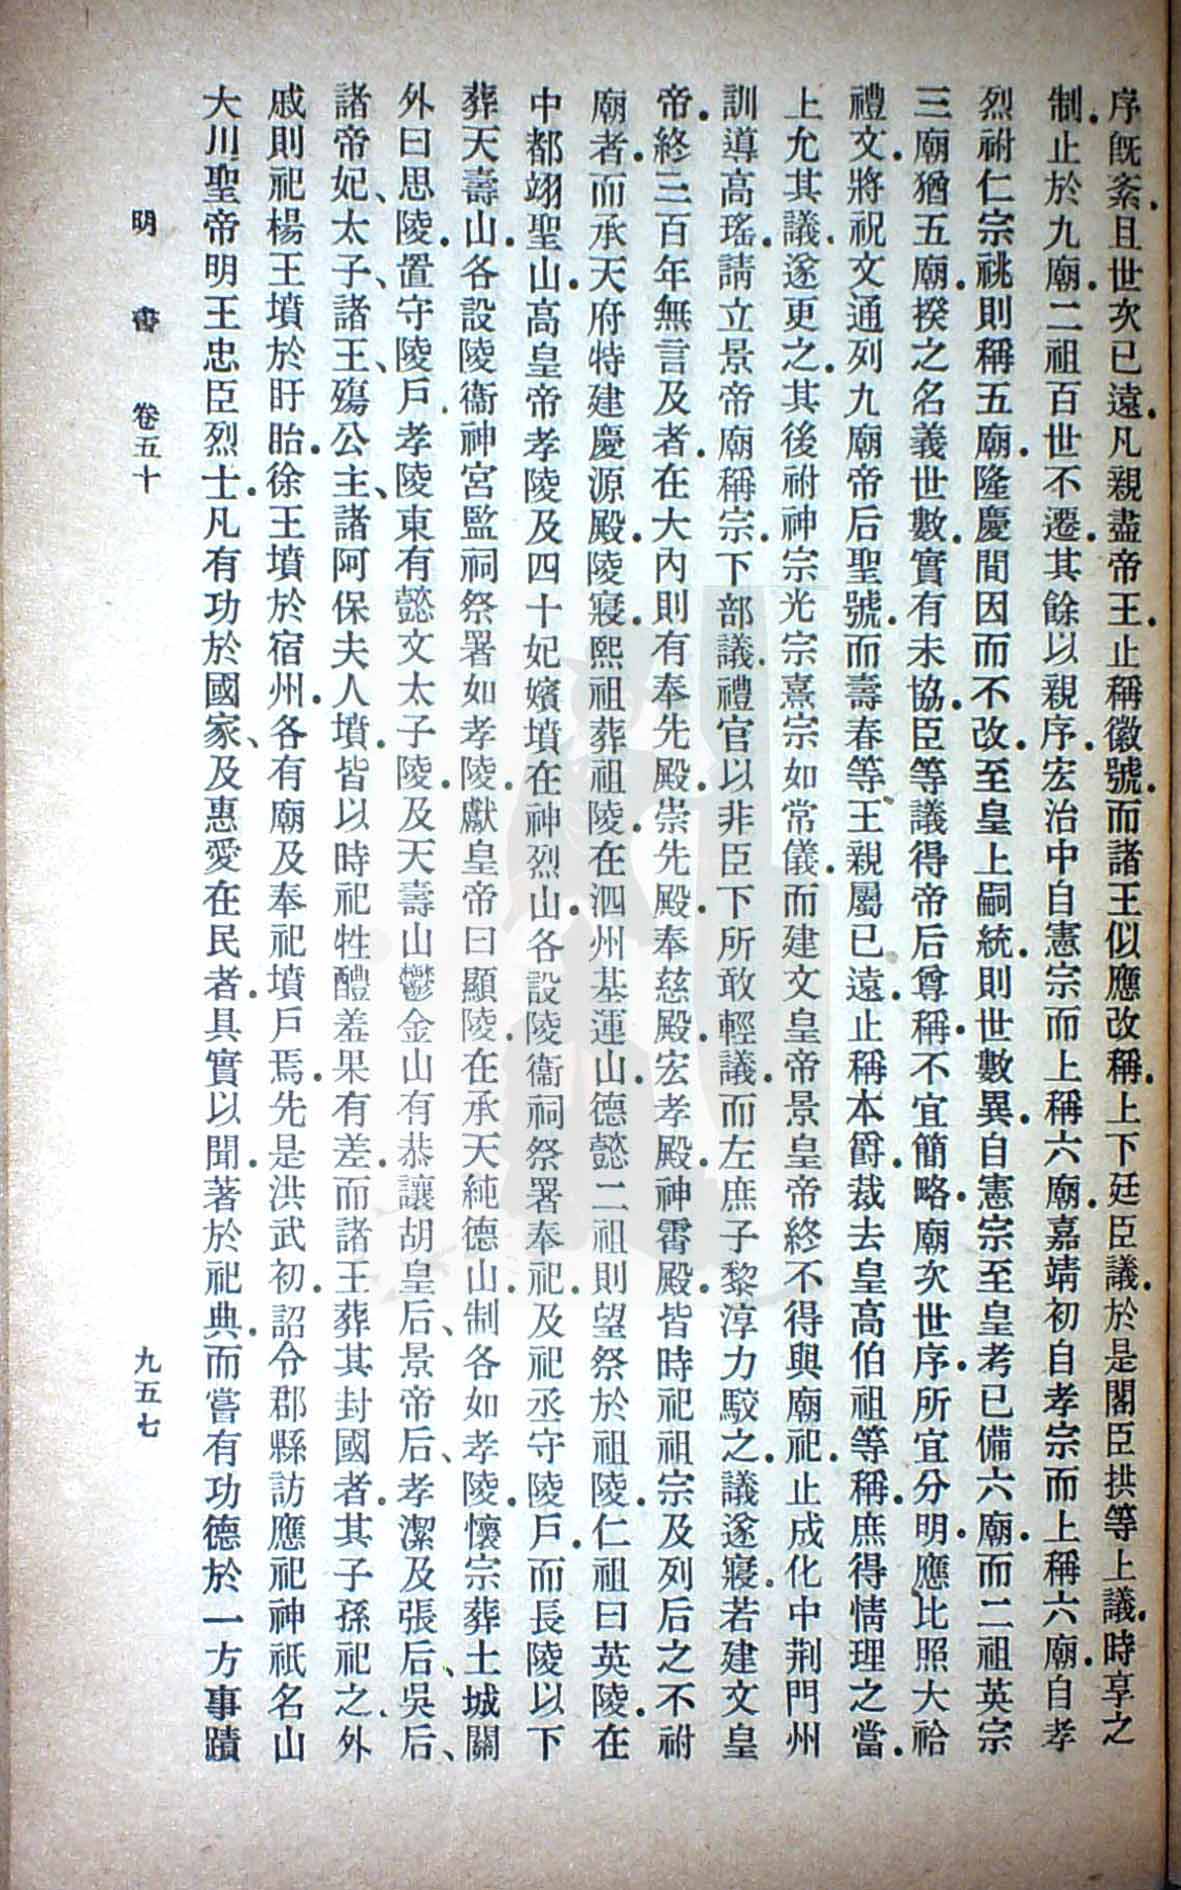 序旣紊且世次已遠凡親盡帝王止稱徽號而諸王似應改稱上下廷臣議於是閣臣拱等上議時享之
制止於九廟二祖百世不遷其餘以親序宏治中自憲宗而上稱六廟嘉靖初自孝宗而上稱六廟自孝
烈祔仁宗祧則稱五廟隆慶間因而不改至皇上嗣統則世數異自憲宗至皇考已備六廟而二祖英宗
三廟猶五廟揆之名義世數實有未協臣等議得帝后尊稱不宜簡略廟次世序所宜分明應比照大祫
禮文將祝文通列九廟帝后聖號而壽春等王親屬已遠止稱本爵裁去皇高伯祖等稱庶得情理之當
上允其議遂更之其後祔神宗光宗熹宗如常儀而建文皇帝景皇帝終不得與廟祀止成化中荆門州
訓導高瑤請立景帝廟稱宗下部議禮官以非臣下所敢輕議而左庶子黎淳力駮之議遂寢若建文皇
帝終三百年無言及者在大內則有奉先殿崇先殿奉慈殿宏孝殿神霄殿皆時祀祖宗及列后之不祔
廟者而承天府特建慶源殿陵寢熙祖葬祖陵在泗州基運山德懿二祖則望祭於祖陵仁祖曰英陵在
中都翊聖山高皇帝孝陵及四十妃嬪墳在神烈山各設陵衞祠祭署奉祀及祀丞守陵戶而長陵以下
葬天壽山各設陵衞神宮監祠祭署如孝陵獻皇帝曰顯陵在承天純德山制各如孝陵懷宗葬土城關
外曰思陵置守陵戶孝陵東有懿文太子陵及天壽山鬱金山有恭讓胡皇后、景帝后、孝潔及張后、吳后、
諸帝妃、太子、諸王、殤公主、諸阿保夫人墳皆以時祀牲醴羞果有差而諸王葬其封國者其子孫祀之外
戚則祀楊王墳於盱眙徐王墳於宿州各有廟及奉祀墳戶焉先是洪武初詔令郡縣訪應祀神祇名山
大川聖帝明王忠臣烈士凡有功於國家、及惠愛在民者具實以聞著於祀典而嘗有功德於一方事蹟
明書 卷五十 九五七